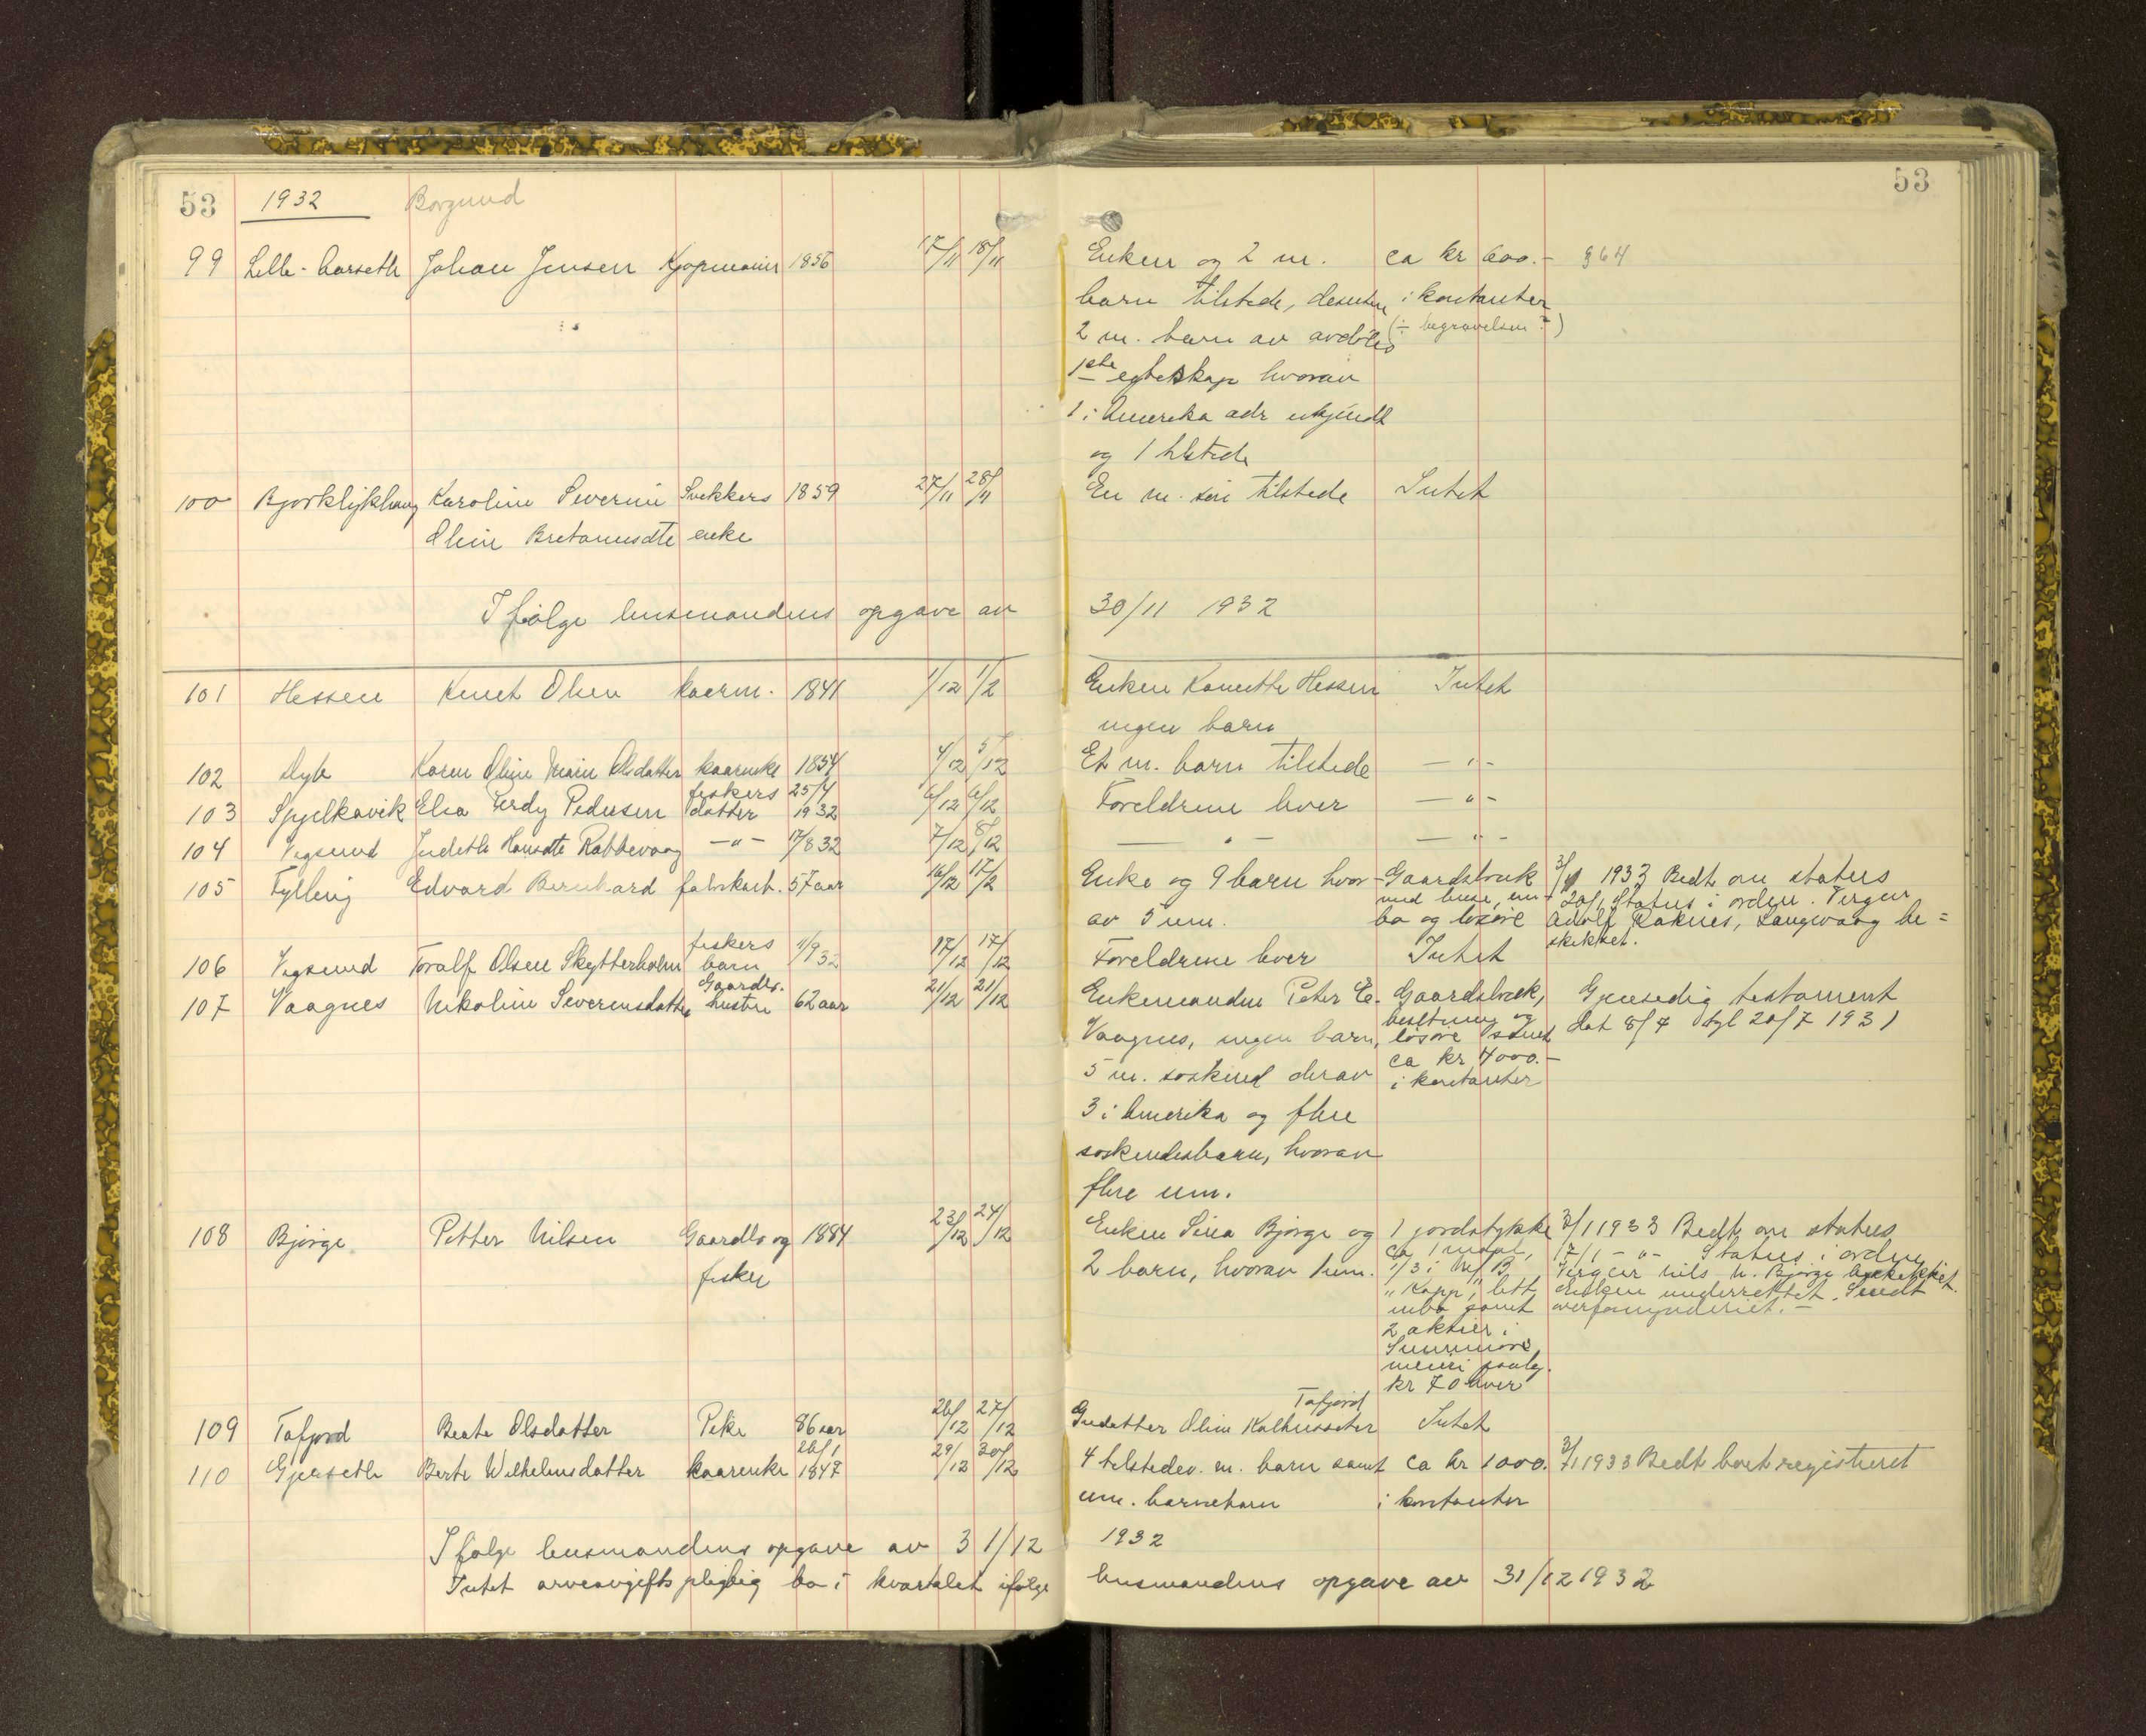 53 1932 Borgund 53
99 Lille-Aarseth Johan Jensen Kjøpmann 1856 17/11 18/11 Enken og 2 m. ca kr 600.- § 64
barn tilstede, desuten i kontanter
2 m. barn av avdødes (÷ begravelsen ?)
1ste egteskap hvorav
1 i Amerika adr ukjendt
og 1 tilstede
100 Bjørklykhaug Karoline Severine Snekkers 1859 27/11 28/11 En m. søn tilstede Intet
Oline enke
Ifølge lensmandens opgave av 30/11 1932
101 Hessen Knut Olsen kaarm. 1841 1/12 1/2 Enken Hessen Intet
ingen barn
102 Dyb Karen Oline Marie Olsdatter kaarenke 1854 4/12 5/12 Et m. barn tilstede — " -
103 Spjelkavik Elsa Gerdy Pedersen fiskers datter 25/4 1932 6/12 6/12 Foreldrene lever — " -
104 Vegsund Judeth Hansdtr Rabbevaag — " — 17/8 32 7/12 8/12 — " — — " —
105 Fylling Edvard Bernhard fabrikarb. 57 aar 16/12 17/2 Enke og 9 barn hvor- Gaardsbruk 3/1 1933 Bedt om status
med huse, inn- 20/1 Status i orden. Verger
av 5 um. bo og løsøre Adolf Raknes, Langevaag be=
skikket.
106 Vegsund Toralf Olsen Skytterholm fiskers barn 11/9 32 17/12 17/12 Foreldrene lever Intet
107 Vaagnes Nikoline Severinsdatter Gaardbr. hustru 62 aar 21/12 21/12 Enkemanden Peter E. Gaardsbruk, Gjensidig testament
Vaagnes, ingen barn, besetning og løsøre samt dat 8/7 tgl 20/7 1931
5 m. søskend derav ca kr 4000.-
i kontanter
3 i Amerika og flere
søskendebarn, hvorav
flere um.
108 Bjørge Petter Nilsen Gaardbr og 1884 23/12 24/12 Enken Sina Bjørge og 1 jordstykke 3/1 1933 Bedt om status
fisker 2 barn, hvorav 1 um. ca 1 maal, 17/1 - " - Status i orden
1/3 i M/ B. Verger Nils N. Bjørge beskikket.
" Kapp, litt Enken underrettet. Sendt
inbo samt overformynderiet. -
2 aktier i
Sunnmøre
meieri paalg.
kr 70 hver
109 Tafjord Beate Olsdatter Pike 86 aar 26/12 27/12 Tafjord
Oline Intet
110 Gjerseth Berte Wilhelmsdatter kaarenke 26/1 1847 29/12 30/12 4 tilstedev. m. barn samt ca kr 1000. 3/1 1933 Bedt boet registreret
um. barnebarn i kontanter
Ifølge lensmandens opgave av 31/12 1932
Intet arveavgiftspligtig bo i kvartalet ifølge lensmandens opgave av 31/12 1932